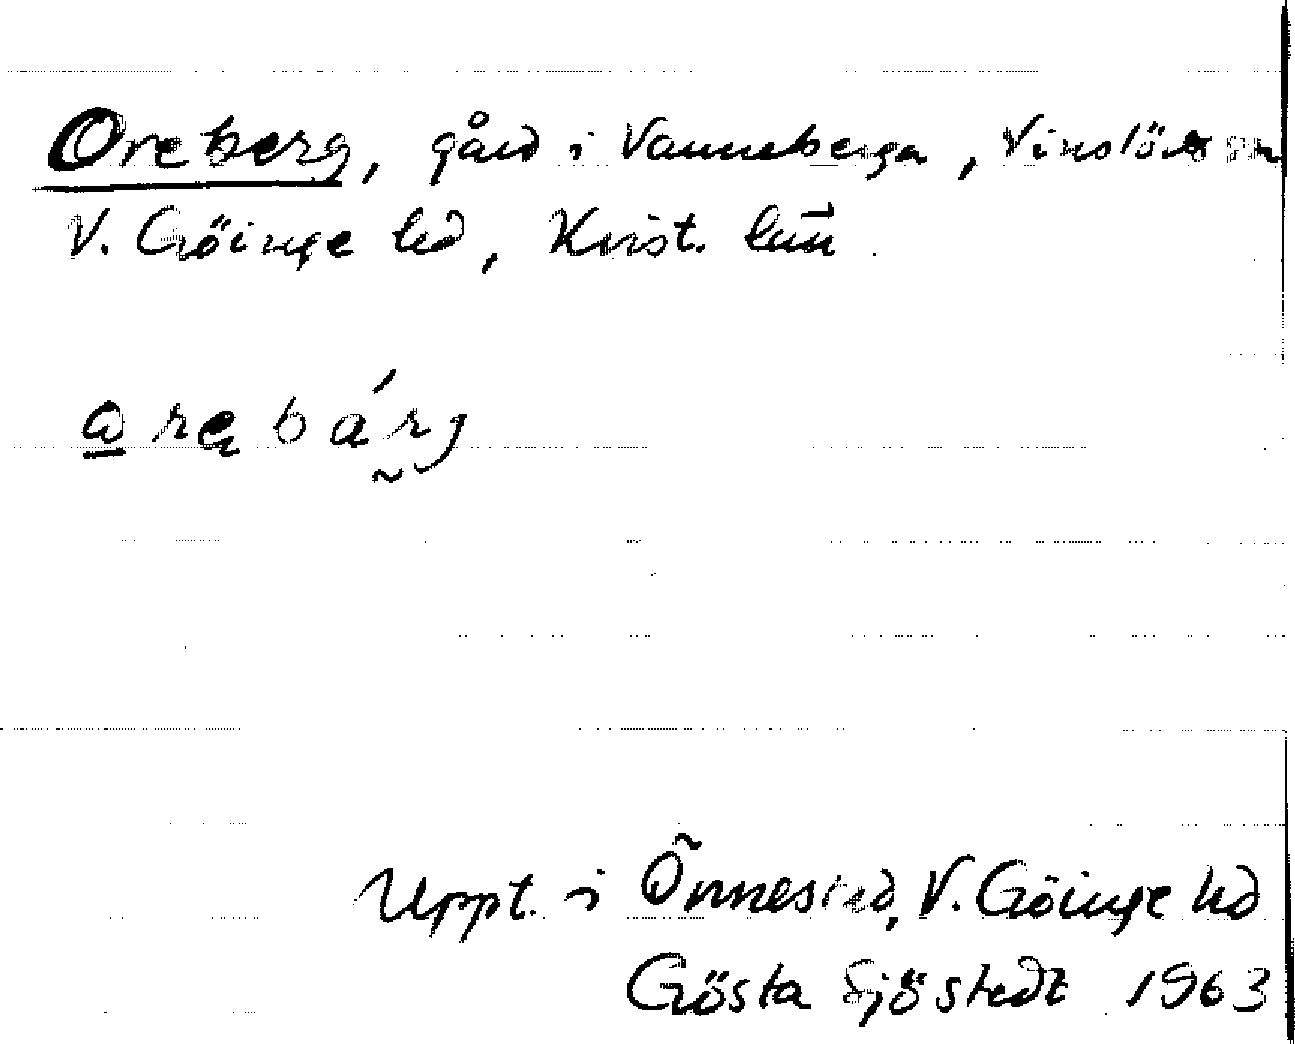 Oreberg, gård i Vanneberga, Vinslövs sn
V. Göinge hd, Krist. län
a rębárg
Uppt. i Önnestad, V. Göinge hd
Gösta Sjöstedt 1963